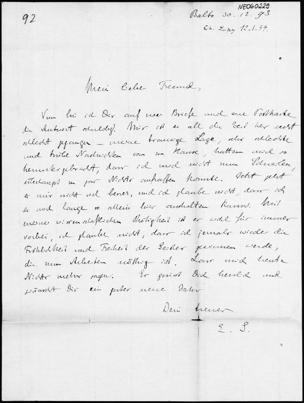 NEO60229
92
Balto 30.12.93
Mein lieber Freund,
Nun bin ich Dir auf zwei Briefe und eine Postkarte
die Antwort schuldig. Mir ist es all die Zeit her recht
schlecht gegangen — meine traurige Lage, die schlechte
und trübe Nachrichten von zu Hause, hatten mich so
heruntergebracht, dass ich mich nicht zum Schreiben
Jetzt geht
es mir nicht viel besser, und ich glaube nicht, dass ich
es noch lange so allein hier aushalten kann. Mit
meiner wissenschaftlichen Thätigkeit ist es wohl für immer
vorbei, ich glaube nicht, dass ich jemals wieder die
Fröhlichkeit und Freiheit der Seele gewinnen werde,
die zum Arbeiten nöthig ist. Lass mich heute
Nichts mehr sagen. Es grüsst Dich herzlich und
wünscht Dir ein gutes neues Jahr
Dein treuer
E. S.